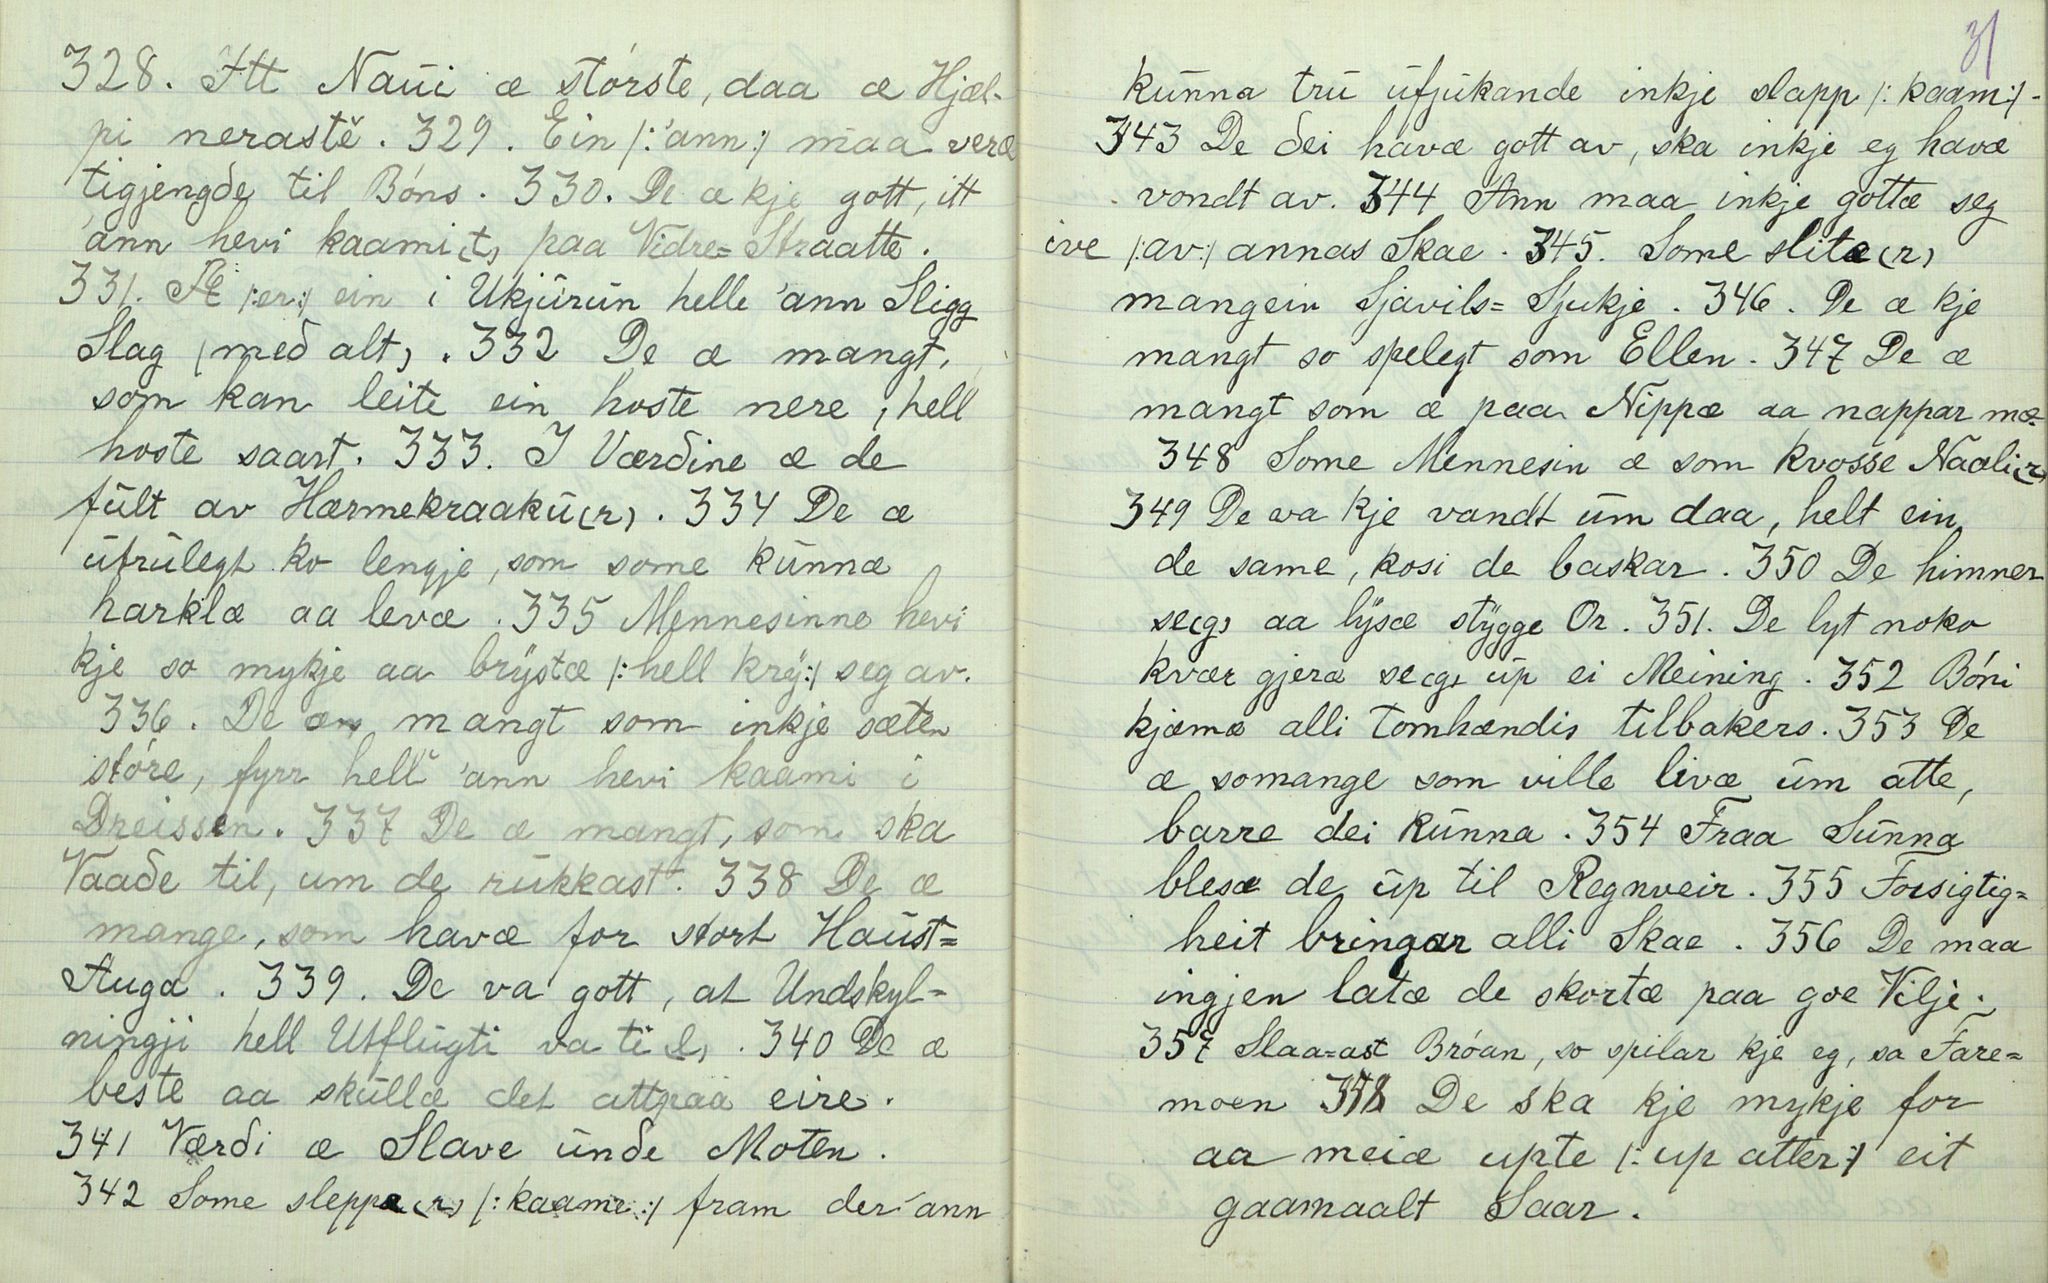 328. Itt Naui æ störste, daa æ Hjæl-
pi neraste. 329. Ein /: 'ann :/ maa veræ
tigjengde til Bóns. 330. De æ kje gott, itt
'ann hevi kaami(t) paa Vidre=Straatte.
331. Æ /:er:/ ein i Ukjurun helle 'ann Sligg
Slag (með alt). 332 De æ mangt,
som kan leite ein hoste nere, hell
hoste saart. 333. I Værðine æ de
fult av Hærmekraaku(r). 334 De æ
utrulegt ko lengje, som some kunnæ
harklæ aa levæ. 335 Mennesinne hevi
kje so mykje aa brystæ /: hell kry :/ seg av.
336. De æ mangt som inkje sæten
støre, fyrr hell 'ann hevi kaami i
Dreissen. 337 De æ mangt, som ska
Vaaðe til, um de rukkast. 338 De æ
mange, som havæ for stort Haust=
Auga. 339. De va gott, at Undskyl=
ningji hell Utflugti va ti(l). 340 De æ
beste aa skullæ det attpaa eire.
341 Værði æ Slave unde Moten.
342 Some sleppæ(r) /: kaame :/ fram der 'ann
31
kunna tru ufjukande inkje slapp /: kaam :/-
343 De ðei havæ gott av, ska inkje eg havæ
vondt av. 344 Ann maa inkje gottæ seg
ive /: av :/ annas Skae. 345. Some slitæ(r)
mangein Sjavils=Sjukje. 346. De æ kje
mangt so spelegt som Ellen. 347 De æ
mangt som æ paa Nippæ aa nappar mæ-
348 Some Mennesin æ som kvosse Naali(r)
349 De va kje vandt um daa, helt ein
de same, kosi de baskar. 350 De himner
se(g) aa lysæ stygge Or. 351. De lyt noko
kvær gjeræ se(g) up ei Meining. 352 Bóni
kjæmæ alli tomhændis tilbakers. 353 De
æ somange som ville livæ um atte,
barre dei kunna. 354 Fraa Sunna
blesæ de up til Regnveir. 355 Forsigtig=
heit bringar alli Skae. 356 De maa
ingjen latæ de skortæ paa goe Vilje.
357 Slaa=ast Bróan, so spilar kje eg, sa Fare=
moen 358 De ska kje mykje for
aa meiæ upte /: up atter :/ eit
gaamaalt Saar.